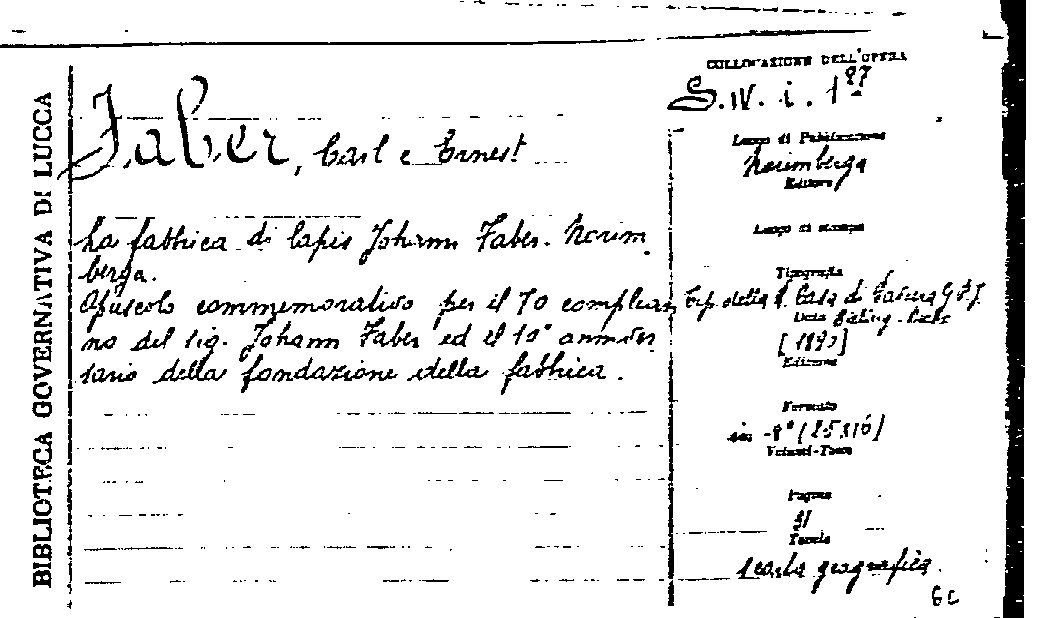 BIBLIOTECA GOVERNATIVA DI LUCCA
COLLOCAZIONE DELL'OPERA
S. IV. i. 1 87
Faber, Carl e Ernest
La fabbrica di lapis Johann Faber. Norim
berga.
Opuscolo commemorativo per il 70 complean
no del sig. Johann Faber ed il 10° anniver
sario della fondazione della fabbrica.
Luogo di Pubblicazione
Norimberga
Editore
Luogo di stampa
Tipografia
Tip. della Casa di
Data
[189 ]
Edizione
Formato
in -8° (25x16)
Volumi-Tomo
Pagine
31
Tavole
1 carta geografica.
GC